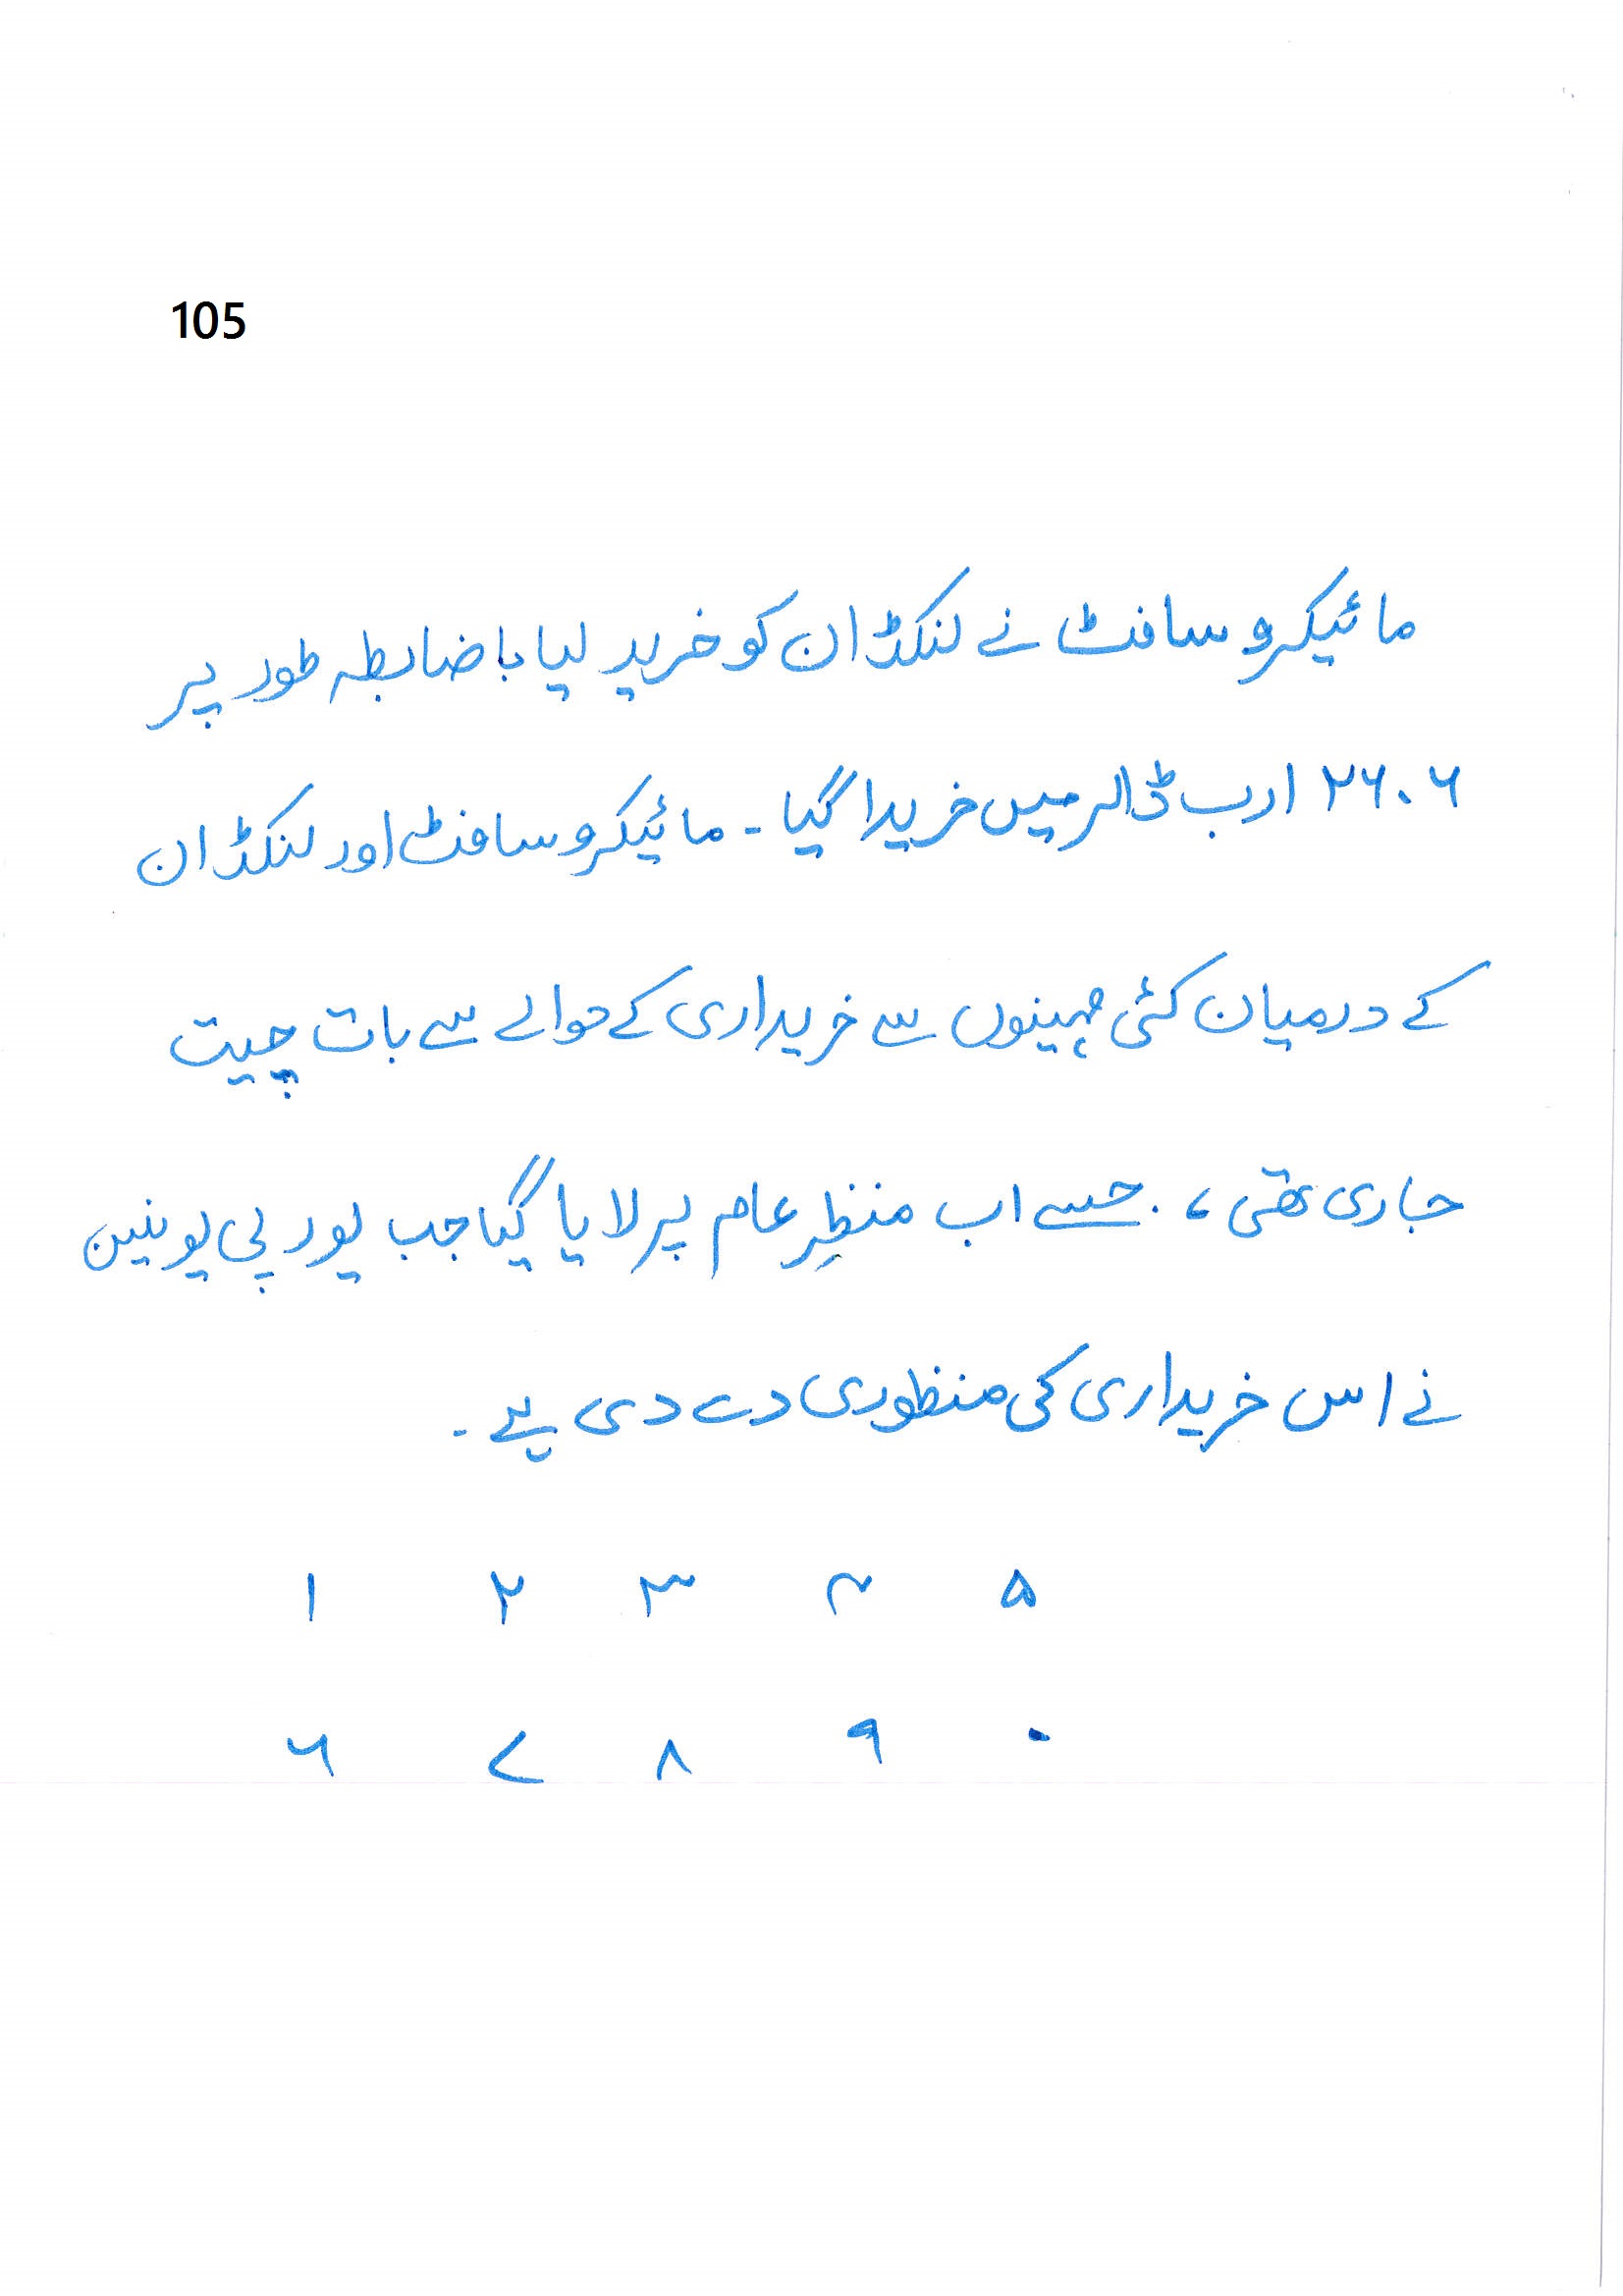 105
مائیکروسافٹ نے لنکڈان کو خرید لیا باضابطہ طور پر
۲۶.۶ ارب ڈالر میں خریدا گیا۔ مائیکروسافٹ اور لنکڈان
کے درمیان کئی مہینوں سے خریداری کے حوالے سے بات چیت
جاری تھی، جسے اب منظرِ عام پر لایا گیا جب یورپی یونین
نے اس خریداری کی منظوری دے دی ہے۔
۱ ۲ ۳ ۴ ۵
۶ ۷ ۸ ۹ ۰